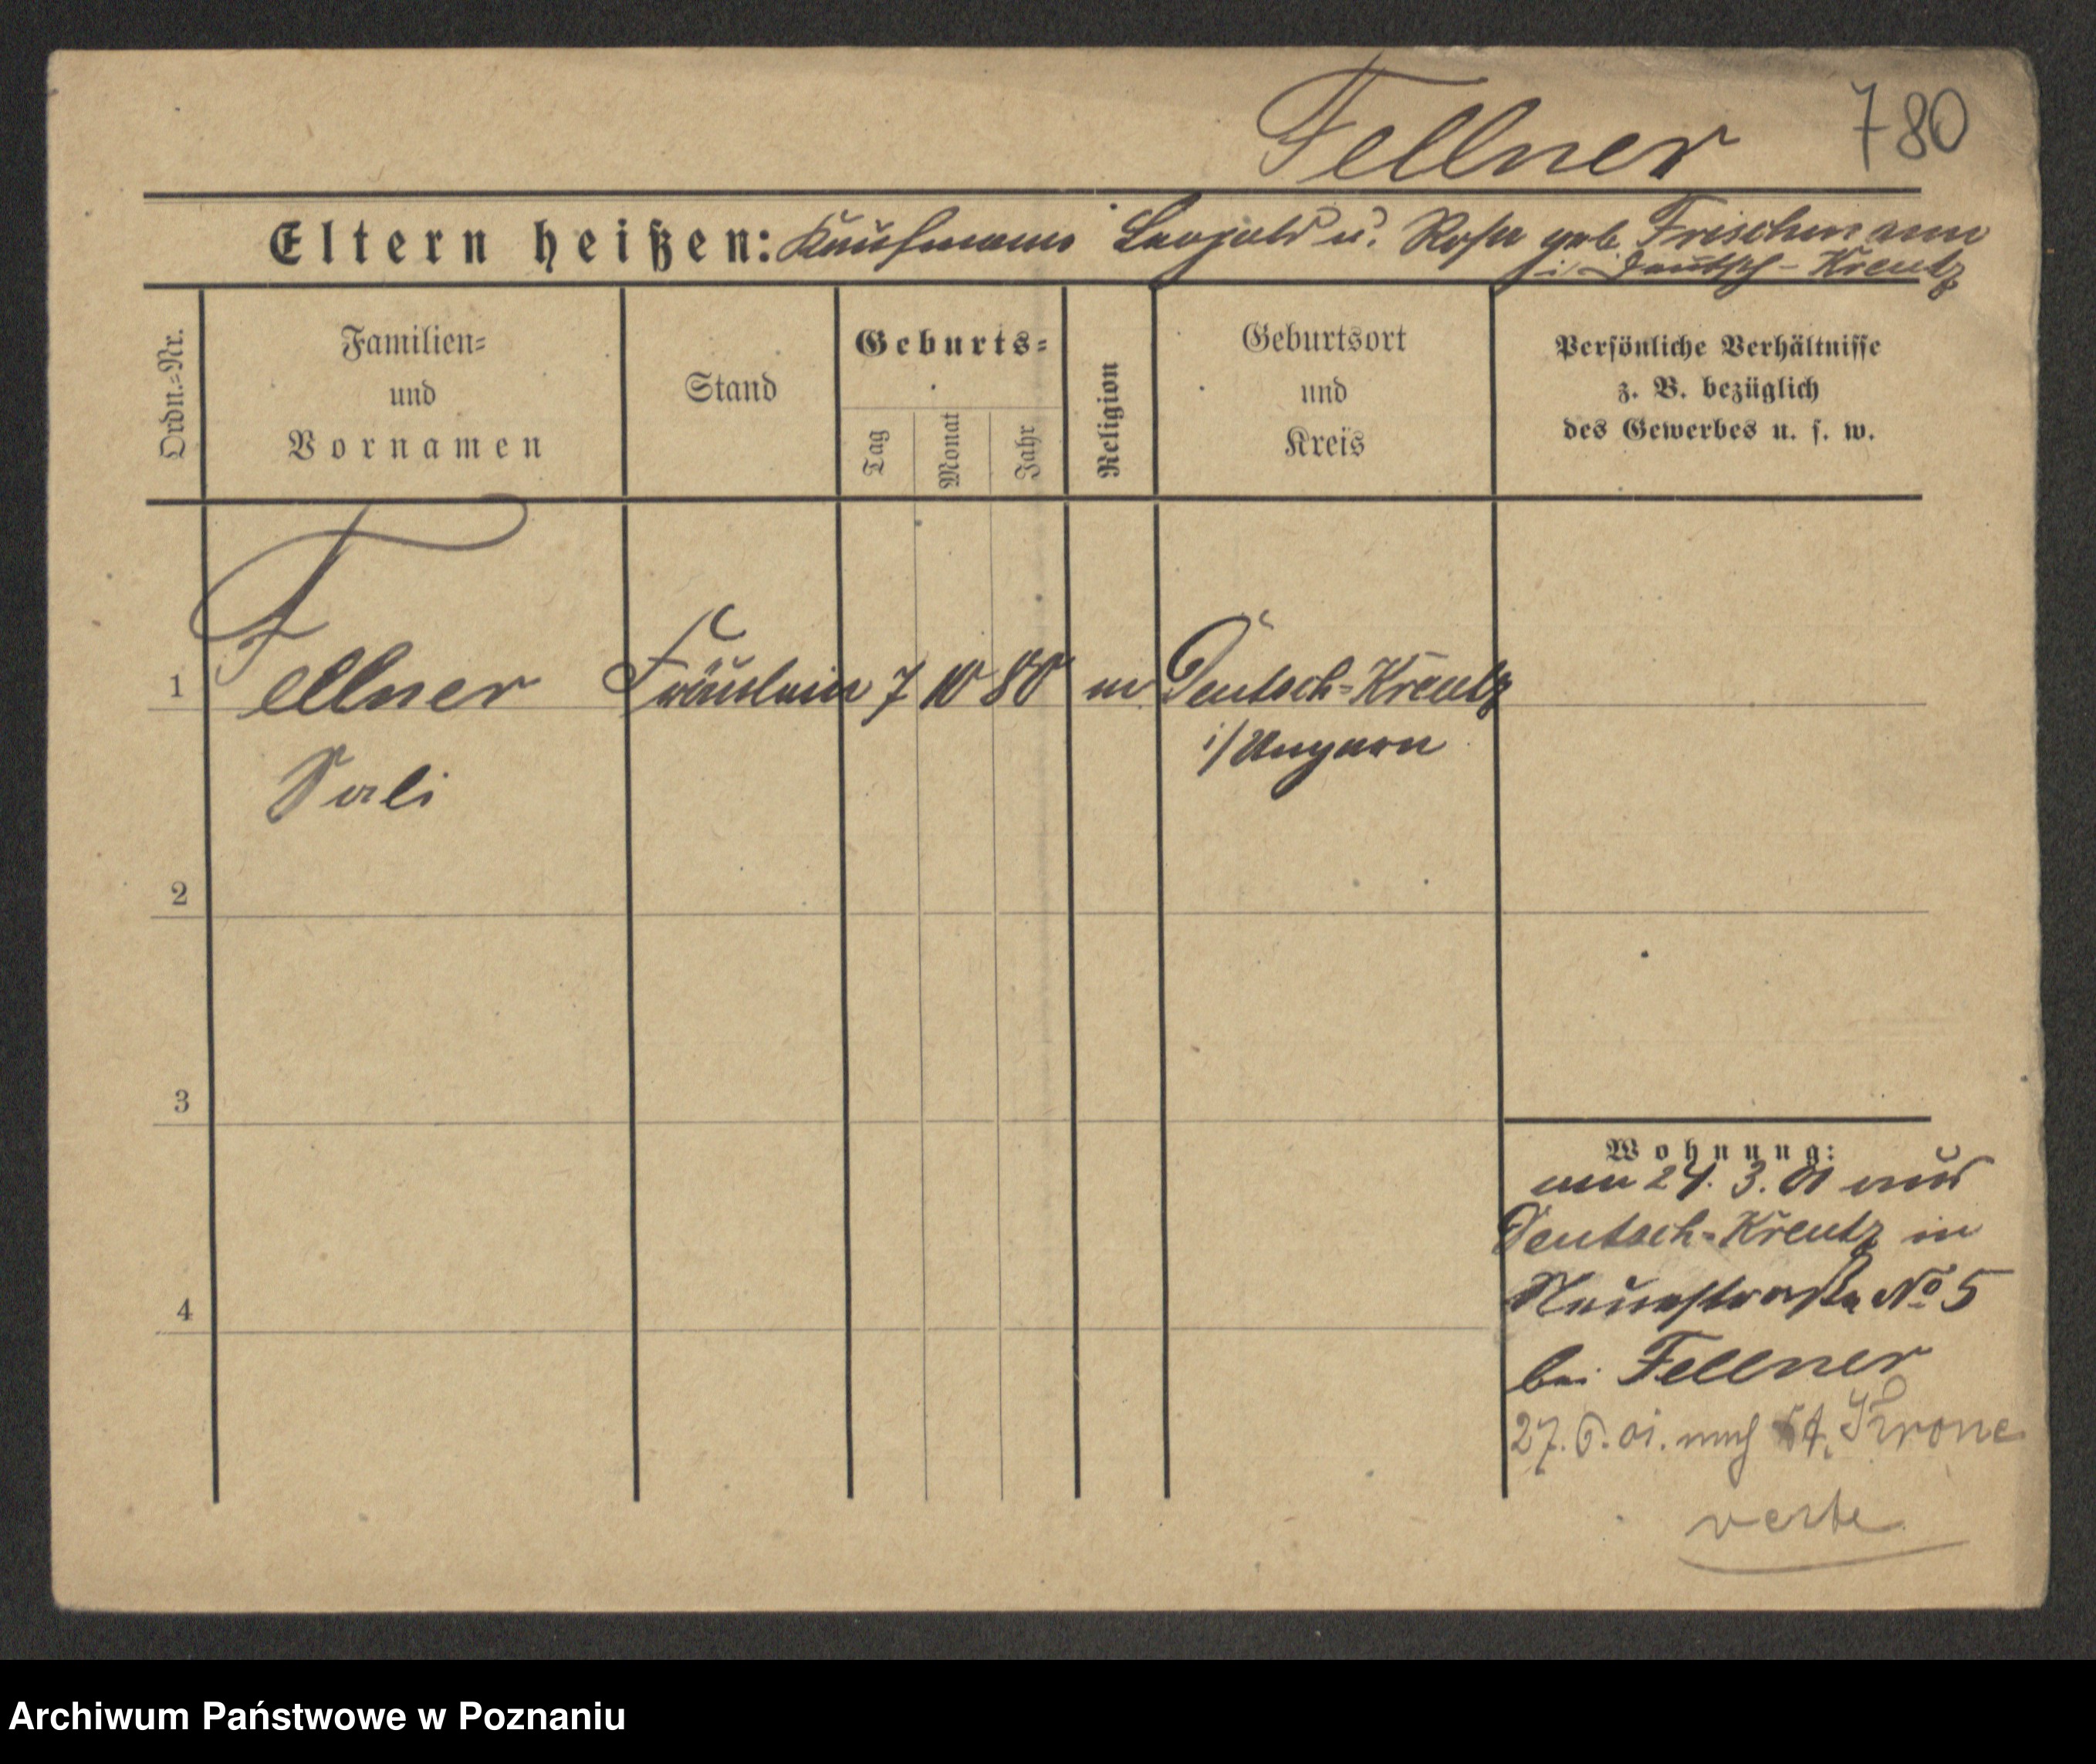 Fellner 780
Eltern heißen: Kaufmann Leopold u. Rosa geb. Frischmann
i. Deutsch-Kreutz
Ordn.=Nr.
Familien=
und
Vornamen
Stand
Geburts=
Tag
Monat
Jahr
Religion
Geburtsort
und
Kreis
Persönliche Verhältnisse
z. B. bezüglich
des Gewerbes u. s. w.
1 Fellner Fräulein 7 10 80 m Deutsch=Kreutz
Sali
i/Ungarn
2
3
4
Wohnung:
am 24. 3. 01 aus
Deutsch=Kreutz in
Neuestraße No 5
bei Fellner
27. 6. 01. nach Krone
verte
Archiwum Państwowe w Poznaniu